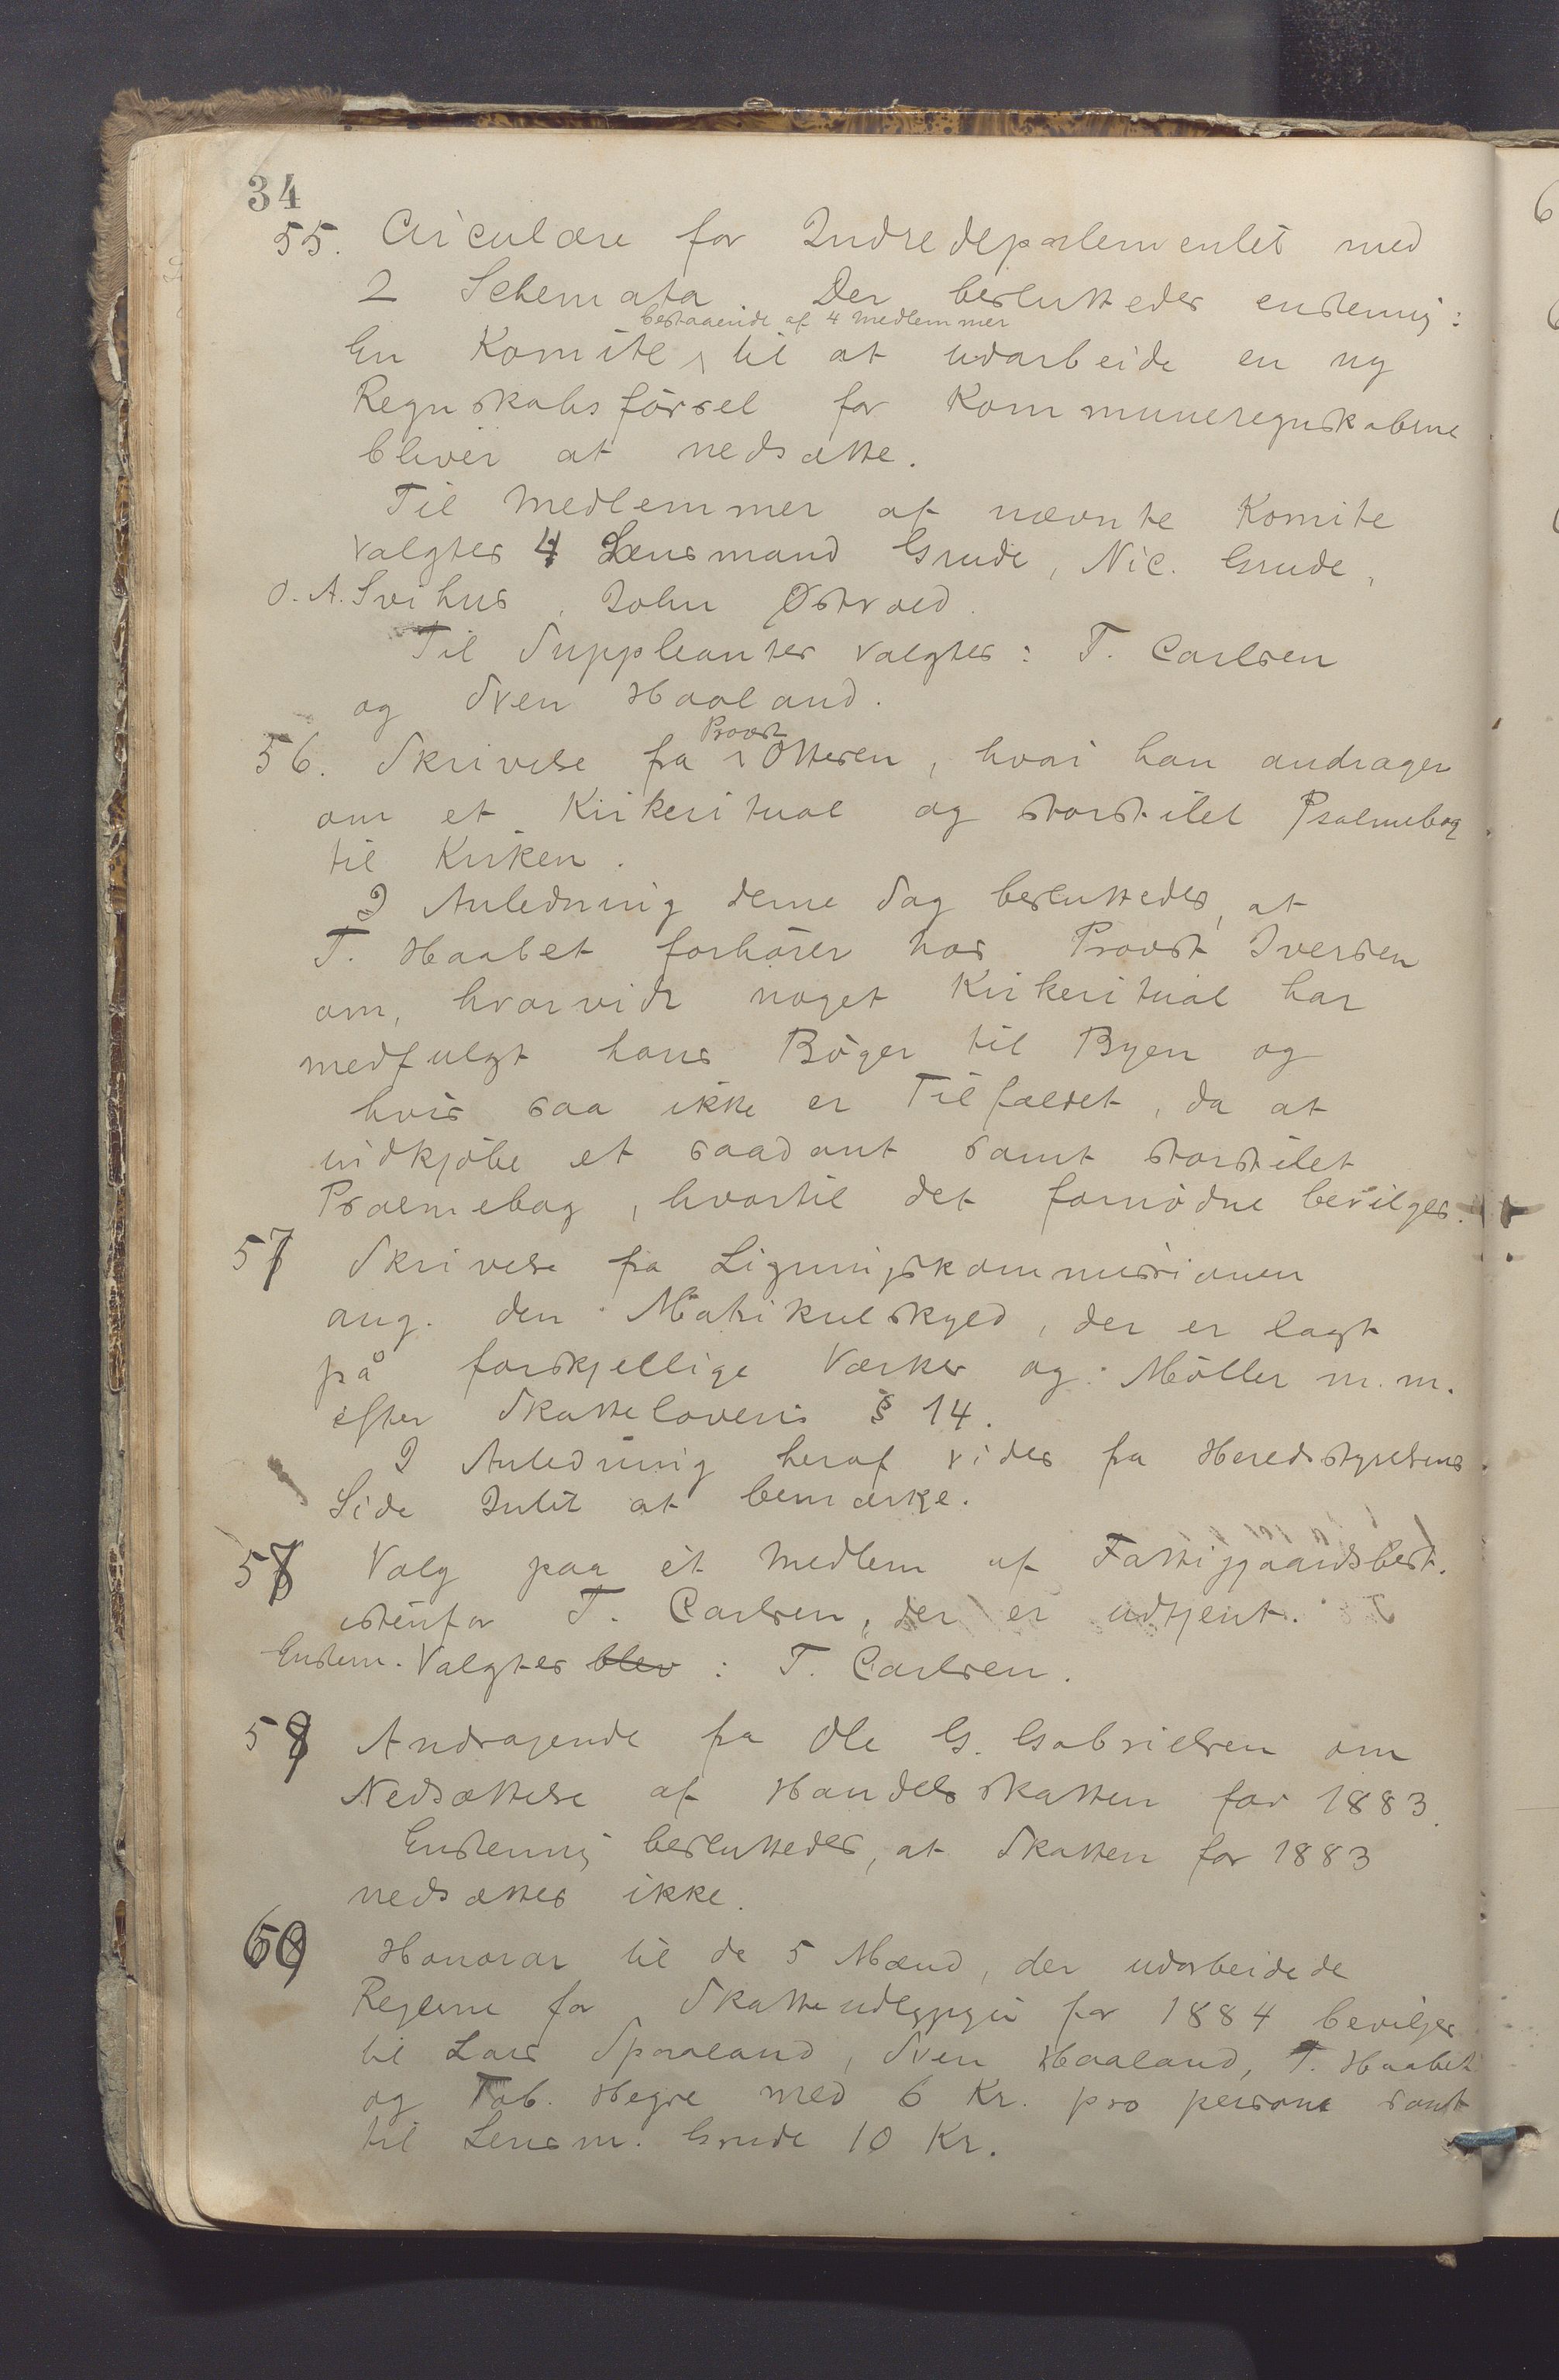 34
55. Circulære for Indredepartementet med
2 Schemata. Der besluttedes enstemig:
bestaaende af 4 medlemmer
En Komite til at udarbeide en ny
Regnskabsførsel for Kommuneregnskaberne
bliver at nedsætte.
Til Medlemmer af nævnte Komite
valgtes 4 Lensmand Grude, Nic. Grude,
O. A. Svihus, John Østraed.
Til Suppleanter valgtes: T. Carlsen
og Sven Haaland.
Provst
56. Skrivelse fra Ottesen, hvori han andrager
om et Kirkeritual og storstilet Psalmebog
til Kirken.
I Anledning denne Sag besluttedes, at
T. Haabet forhører hos Provst Iversen
om, hvorvidt noget Kirkeritual har
medfulgt hans Bøger til Byen og
hvis saa ikke er Tilfældet, da at
indkjøbe et saadant samt storstilet
Psalmebog, hvortil det fornødne bevilges.
57 Skrivelse fra Ligningskommissionen
ang. den Matrikulskyld, der er lagt
på forskjellige Værker og Møller m.m.
efter Skattelovens § 14.
I Anledning heraf vides fra Heredsstyrelsens
Side Intet at bemærke.
58 Valg paa èt Medlem af Fattiggaardsbest.
istenfor T. Carlsen, der er udtjent.
Enstem. Valgtes blev : T. Carlsen.
59 Andragende fra Ole G. Gabrielsen om
Nedsættelse af Handelsskatten for 1883.
Enstemig besluttedes, at Skatten for 1883
nedsættes ikke.
60 Honorar til de 5 Mænd, der udarbeidede
Reglerne for Skatteudlygnin for 1884 bevilges
til Lars Spaaland, Sven Haaland, T. Haabet
og Tob. Hegre med 6 Kr. pro persona samt
til Lensm. Grude 10 Kr.